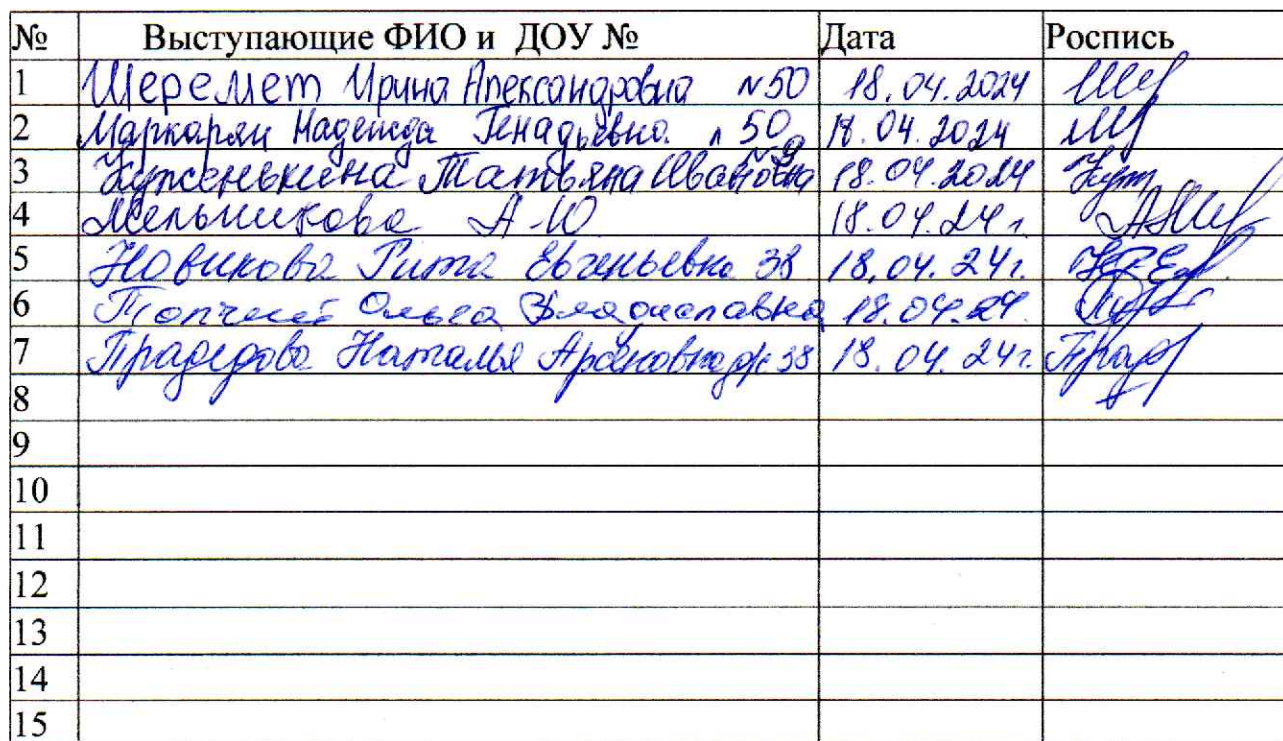 № Выступающие ФИО и ДОУ № Дата Роспись
1 Шеремет Ирина Александровна №50 18.04.2024
2 Маркарян Надежда Генадьевна 50 18.04.2024
3 Татьяна Ивановна №9 18.04.2024
4 Мельникова А.Ю 18.04.24 г
5 Новикова Рита Евгеньевна 38 18.04.24г.
6 Топчий Ольга Владиславвна 18.04.24
7 Прадедова Наталья Арсеновна 38 18.04.24г.
8
9
10
11
12
13
14
15